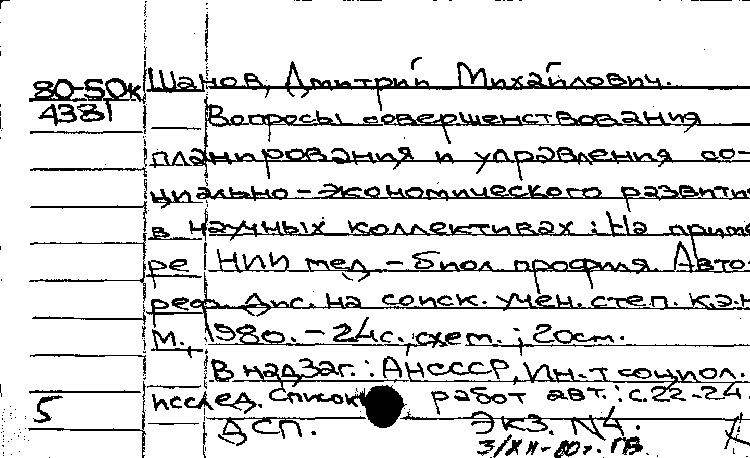 80-50к Шанов, Дмитрий Михайлович.
4381 Вопросы совершенствования
планирования и управления со-
циально-экономического развития
в научных коллективах: На приме-
ре НИИ мед.-биол. профиля. Авто-
реф. Дис. на соиск. учен. степ. к.э.н.
М., 1980. - 24с., схем.; 20см.
В надзаг.: АН СССР, Ин-т социол.
исслед. Список работ авт.: с.22-24.
5 ДСП. Экз. N4.
3/XII-80г. ГВ